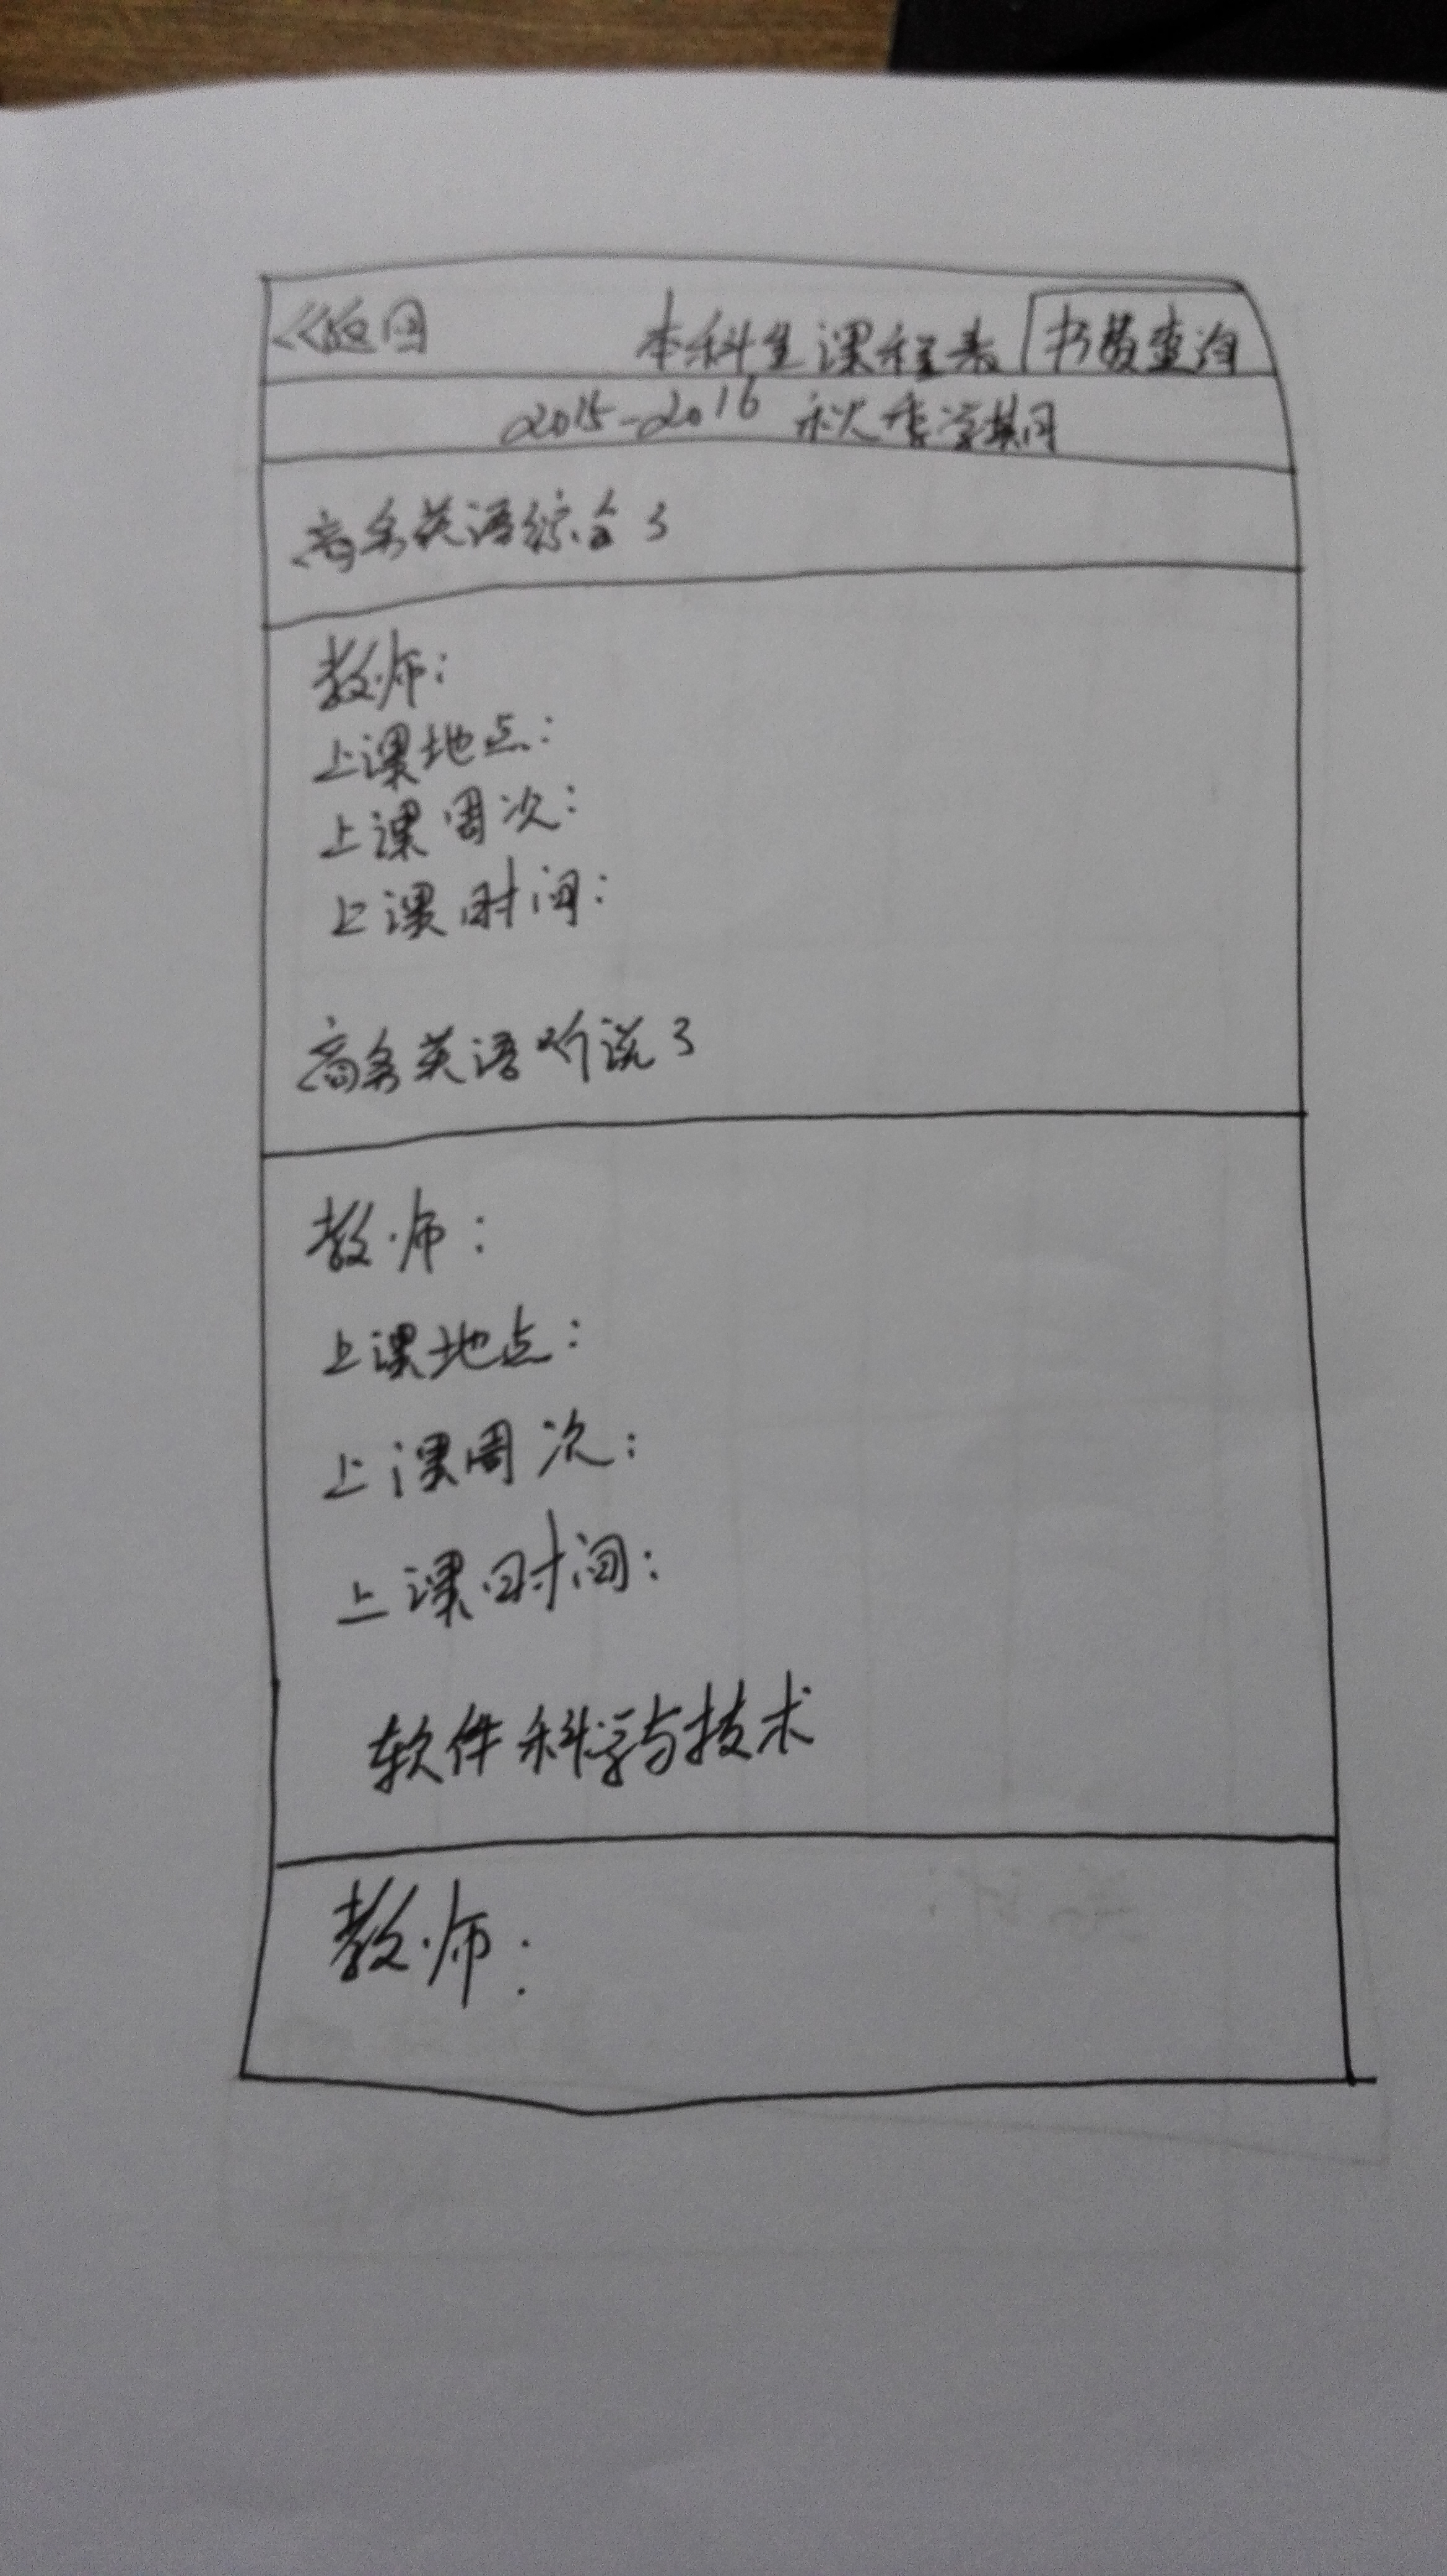 <<返回 本科生课程表 书费查询
2015-2016 秋季学期
商务英语综合3
教师:
上课地点:
上课周次:
上课时间:
商务英语听说3
教师:
上课地点:
上课周次:
上课时间:
软件科学与技术
教师: